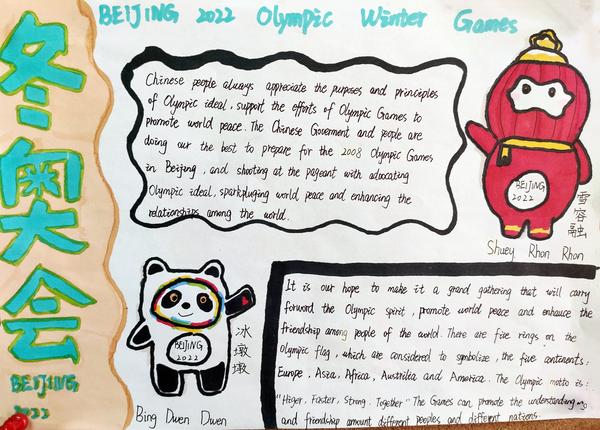 冬奥大会
BEIJING
2022
BEIJING 2022 Olympic Winter Games
Chinese people always appreciate the purposes and principles
of Olympic ideal, support the efforts of Olympic Games to
promote world peace. The Chinese Goverment and people are
doing our the best to prepare for the 2008 Olympic Games
in Beijing, and shooting at the pageant with adocating
Olympic ideal, sparkpluging world peace and enhancing the
relationships among the world.
BEIJING
2022
雪容融
Shuey Rhon Rhon
BEIJING
2022
冰墩墩
Bing Dwen Dwen
It is our hope to make it a grand gathering that will carry
forward the Olympic spirit, promote world peace and enhance the
friendship among people of the world. There are five rings on the
Olympic flag, which are considered to symbolize, the five continents:
Europe, Asia, Africa, Australia and America. The Olympic motto is:
"Higer, Faster, Strong. Together" The Games can promote the understanding
and friendship amount different peoples and different nations.